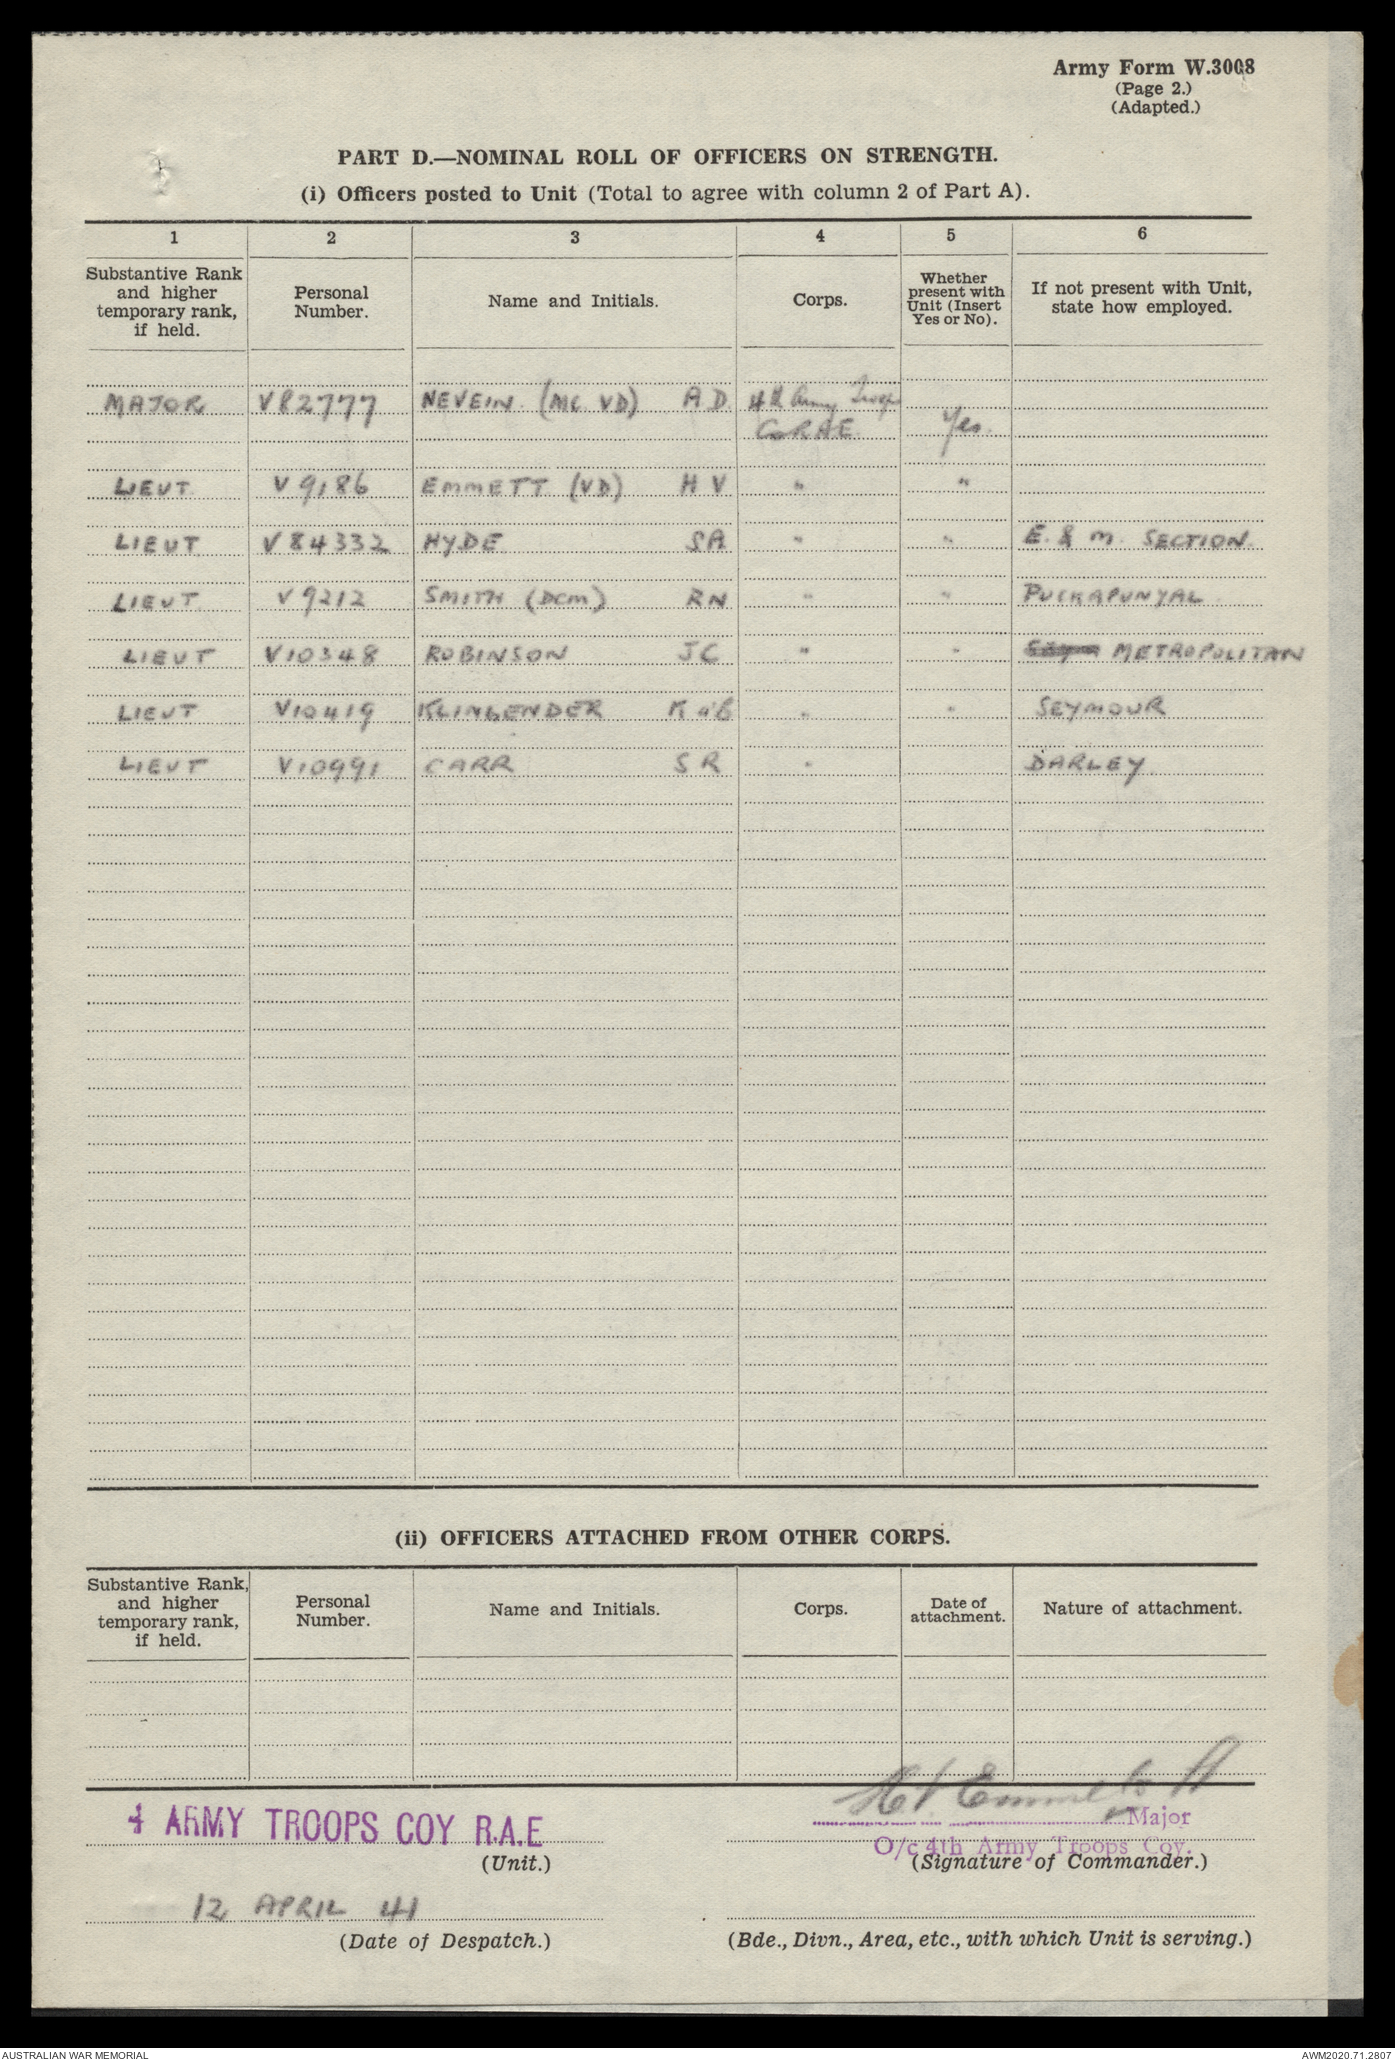 Army Form W.3008
(Page 2.)
(Adapted.)
PART D.—NOMINAL ROLL OF OFFICERS ON STRENGTH.
(i) Officers posted to Unit (Total to agree with column 2 of Part A).
1 2 3 4 5 6
Substantive Rank and higher temporary rank, if held. Personal Number. Name and Initials. Corps. Whether present with Unit (Insert Yes or No). If not present with Unit, state how employed.
MAJOR V82777 NEVEIN. (MC VD) A D. 4th Army Troops
Coy RAE Yes.
LIEUT V9186 EMMETT (VD) H V " "
LIEUT V84332 HYDE SA " " E. & M. SECTION.
LIEUT V9212 SMITH (DCM) RN " " PUCKAPUNYAL
LIEUT V10348 ROBINSON JC " " METROPOLITAN
LIEUT V10419 KLINGENDER K a'B " " SEYMOUR
LIEUT V10991 CARR S R " DARLEY
(ii) OFFICERS ATTACHED FROM OTHER CORPS.
Substantive Rank, and higher temporary rank, if held. Personal Number. Name and Initials. Corps. Date of attachment. Nature of attachment.
4 ARMY TROOPS COY R.A.E
(Unit.)
H V Emmett Lt
Major
O/c 4th Army Troops Coy.
(Signature of Commander.)
12 APRIL 41
(Date of Despatch.)
(Bde., Divn., Area, etc., with which Unit is serving.)
AUSTRALIAN WAR MEMORIAL AWM2020.71.2807